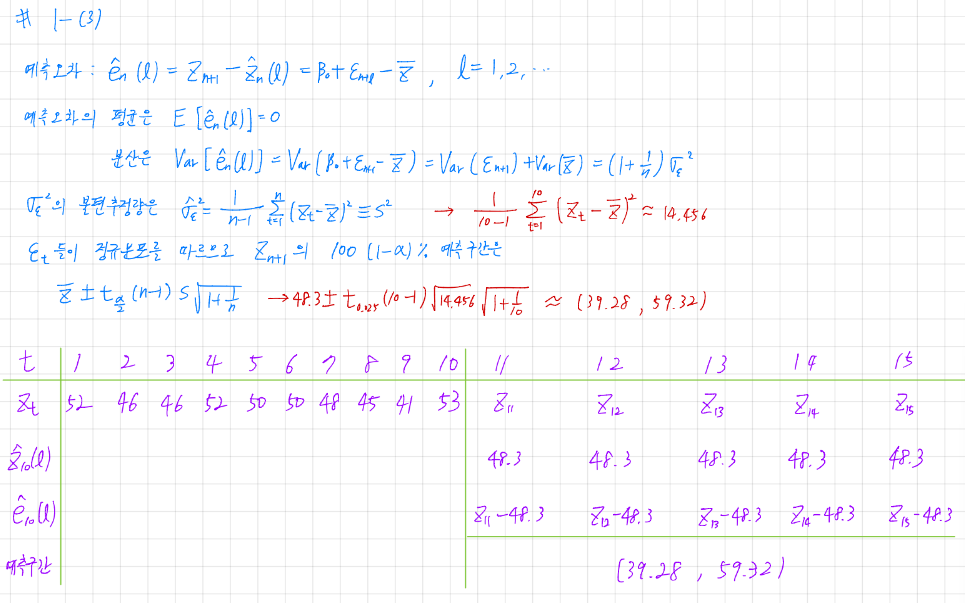 # 1-(3)
예측오차 : ê_n(l) = Z_{n+1} - ẑ_n(l) = β₀ + ε_{n+l} - z̄ , l = 1, 2, ⋯
예측오차의 평균은 E[ê_n(l)] = 0
분산은 Var[ê_n(l)] = Var(β₀ + ε_{n+1} - z̄) = Var(ε_{n+1}) + Var(z̄) = (1 + 1/n) σ_ε²
σ_ε²의 불편추정량은 σ̂_ε² = 1/(n-1) Σ_{t=1}^{n} (z_t - z̄)² ≡ S² → 1/(10-1) Σ_{t=1}^{10} (z_t - z̄)² ≈ 14.456
ε_t 들이 정규분포를 따르므로 Z_{n+1}의 100(1-α)% 예측구간은
z̄ ± t_{α/2}(n-1) S √(1 + 1/n) → 48.3 ± t_{0.025}(10-1) √14.456 √(1 + 1/10) ≈ (39.28 , 59.32)
t 1 2 3 4 5 6 7 8 9 10 11 12 13 14 15
Z_t 52 46 46 52 50 50 48 45 41 53 Z₁₁ Z₁₂ Z₁₃ Z₁₄ Z₁₅
ẑ₁₀(l) 48.3 48.3 48.3 48.3 48.3
ê₁₀(l) Z₁₁-48.3 Z₁₂-48.3 Z₁₃-48.3 Z₁₄-48.3 Z₁₅-48.3
예측구간 (39.28 , 59.32)